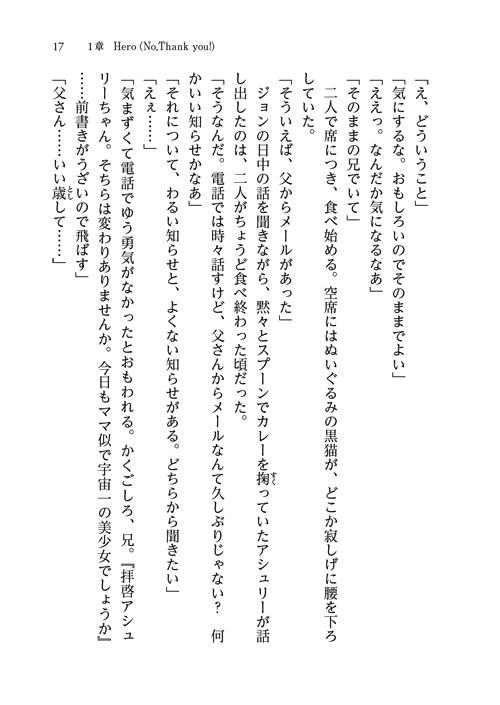 17　1章　Hero (No,Thank you!)
「え、どういうこと」
「気にするな。おもしろいのでそのままでよい」
「ええっ。なんだか気になるなあ」
「そのままの兄でいて」
　二人で席につき、食べ始める。空席にはぬいぐるみの黒猫が、どこか寂しげに腰を下ろ
していた。
「そういえば、父からメールがあった」
　ジョンの日中の話を聞きながら、黙々とスプーンでカレーを掬っていたアシュリーが話
し出したのは、二人がちょうど食べ終わった頃だった。
「そうなんだ。電話では時々話すけど、父さんからメールなんて久しぶりじゃない？　何
かいい知らせかなあ」
「それについて、わるい知らせと、よくない知らせがある。どちらから聞きたい」
「えぇ……」
「気まずくて電話でゆう勇気がなかったとおもわれる。かくごしろ、兄。『拝啓アシュ
リーちゃん。そちらは変わりありませんか。今日もママ似で宇宙一の美少女でしょうか』
……前書きがうざいので飛ばす」
「父さん……いい歳して……」